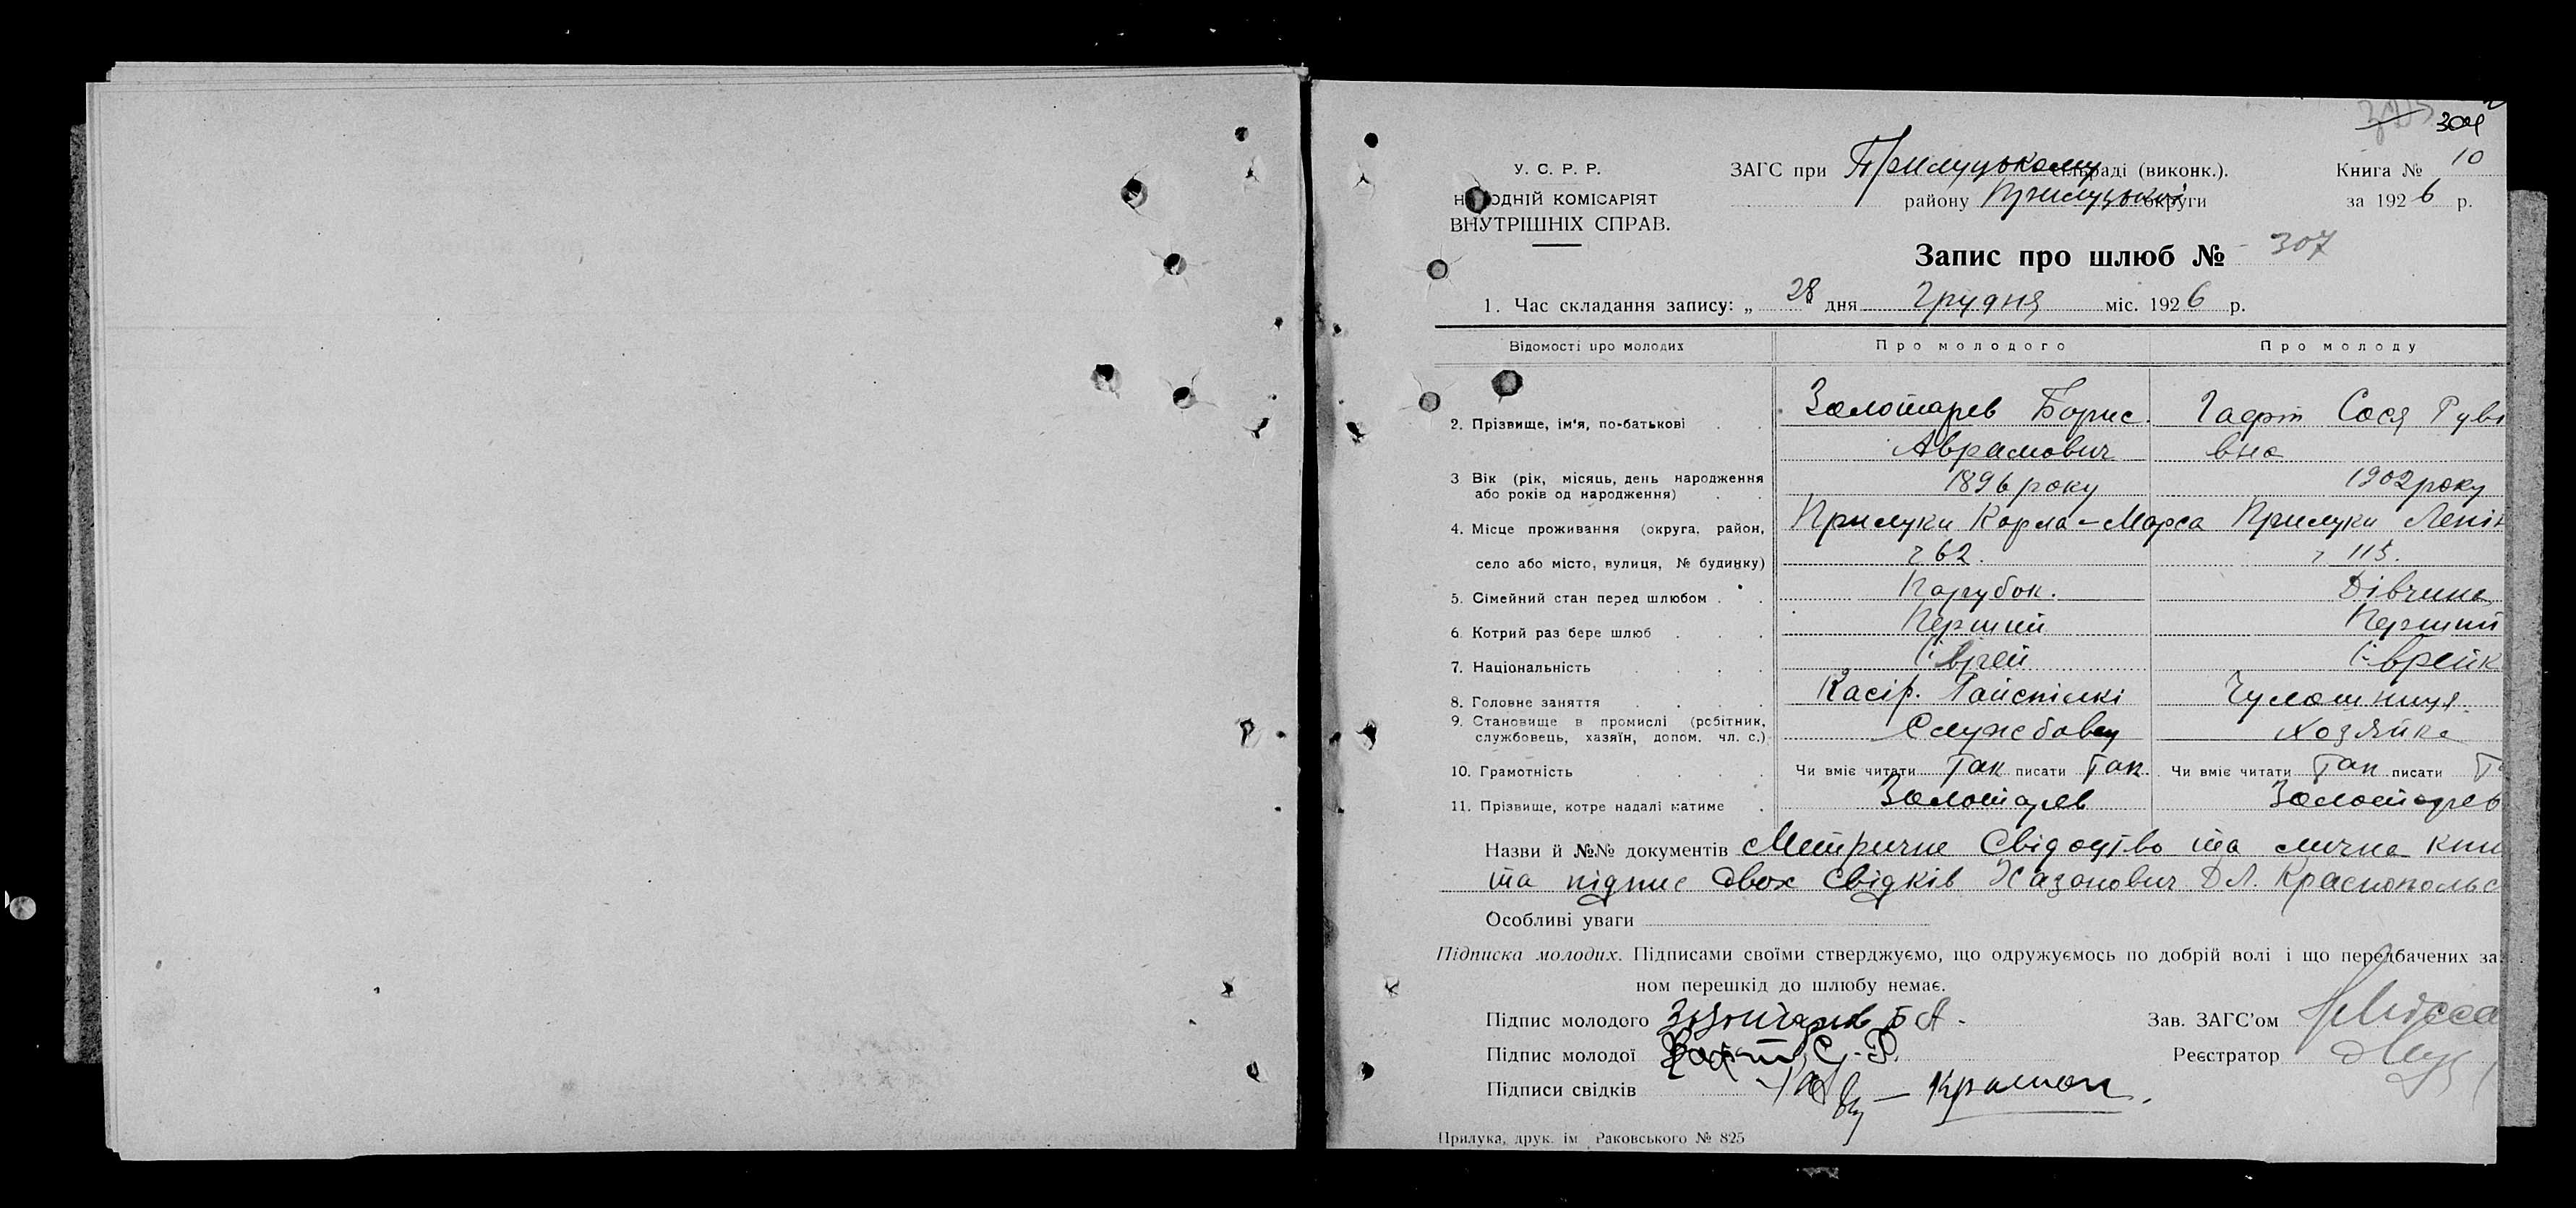 304
У. С. Р. Р.
НАРОДНІЙ КОМІСАРІЯТ
ВНУТРІШНІХ СПРАВ.
ЗАГС при Прилуцькому сільраді (виконк.).
району Прилуцької округи
Книга № 10
за 1926 р.
Запис про шлюб № 307
1. Час складання запису: „ 28 " дня Грудня міс. 1926 р.
Відомості про молодих Про молодого Про молоду
2. Прізвище, ім'я, по-батькові Золотарев Борис Гафт Сося Руві
Аврамович вна
3 Вік (рік, місяць, день народження
або років од народження) 1896 року 1902 року
4. Місце проживання (округа, район, Прилуки Карла-Марса Прилуки Лені
село або місто, вулиця, № будинку) 62. 115.
5. Сімейний стан перед шлюбом Парубок. Дівчина
6. Котрий раз бере шлюб Перший Перший
7. Національність Єврей Єврейк
8. Головне заняття Касір. Райспілкі Чулошниця
9. Становище в промислі (робітник,
службовець, хазяїн, допом. чл. с.) Службовец Хозяйка
10. Грамотність Чи вміє читати Так писати Так. Чи вміє читати Так писати
11. Прізвище, котре надалі матиме Золотарев Золотарев
Назви й №№ документів Метричне Свідоцтво та лична кни
та підпис двох свідків Хазанович Д Л. Краснопольс
Особливі уваги
Підписка молодих. Підписами своїми стверджуємо, що одружуємось по добрій волі і що передбачених за
ном перешкід до шлюбу немає.
Підпис молодого Золотарев Б А Зав. ЗАГС'ом
Підпис молодої Гафт С. Р. Реєстратор
Підписи свідків
Прилука, друк. ім Раковського № 825